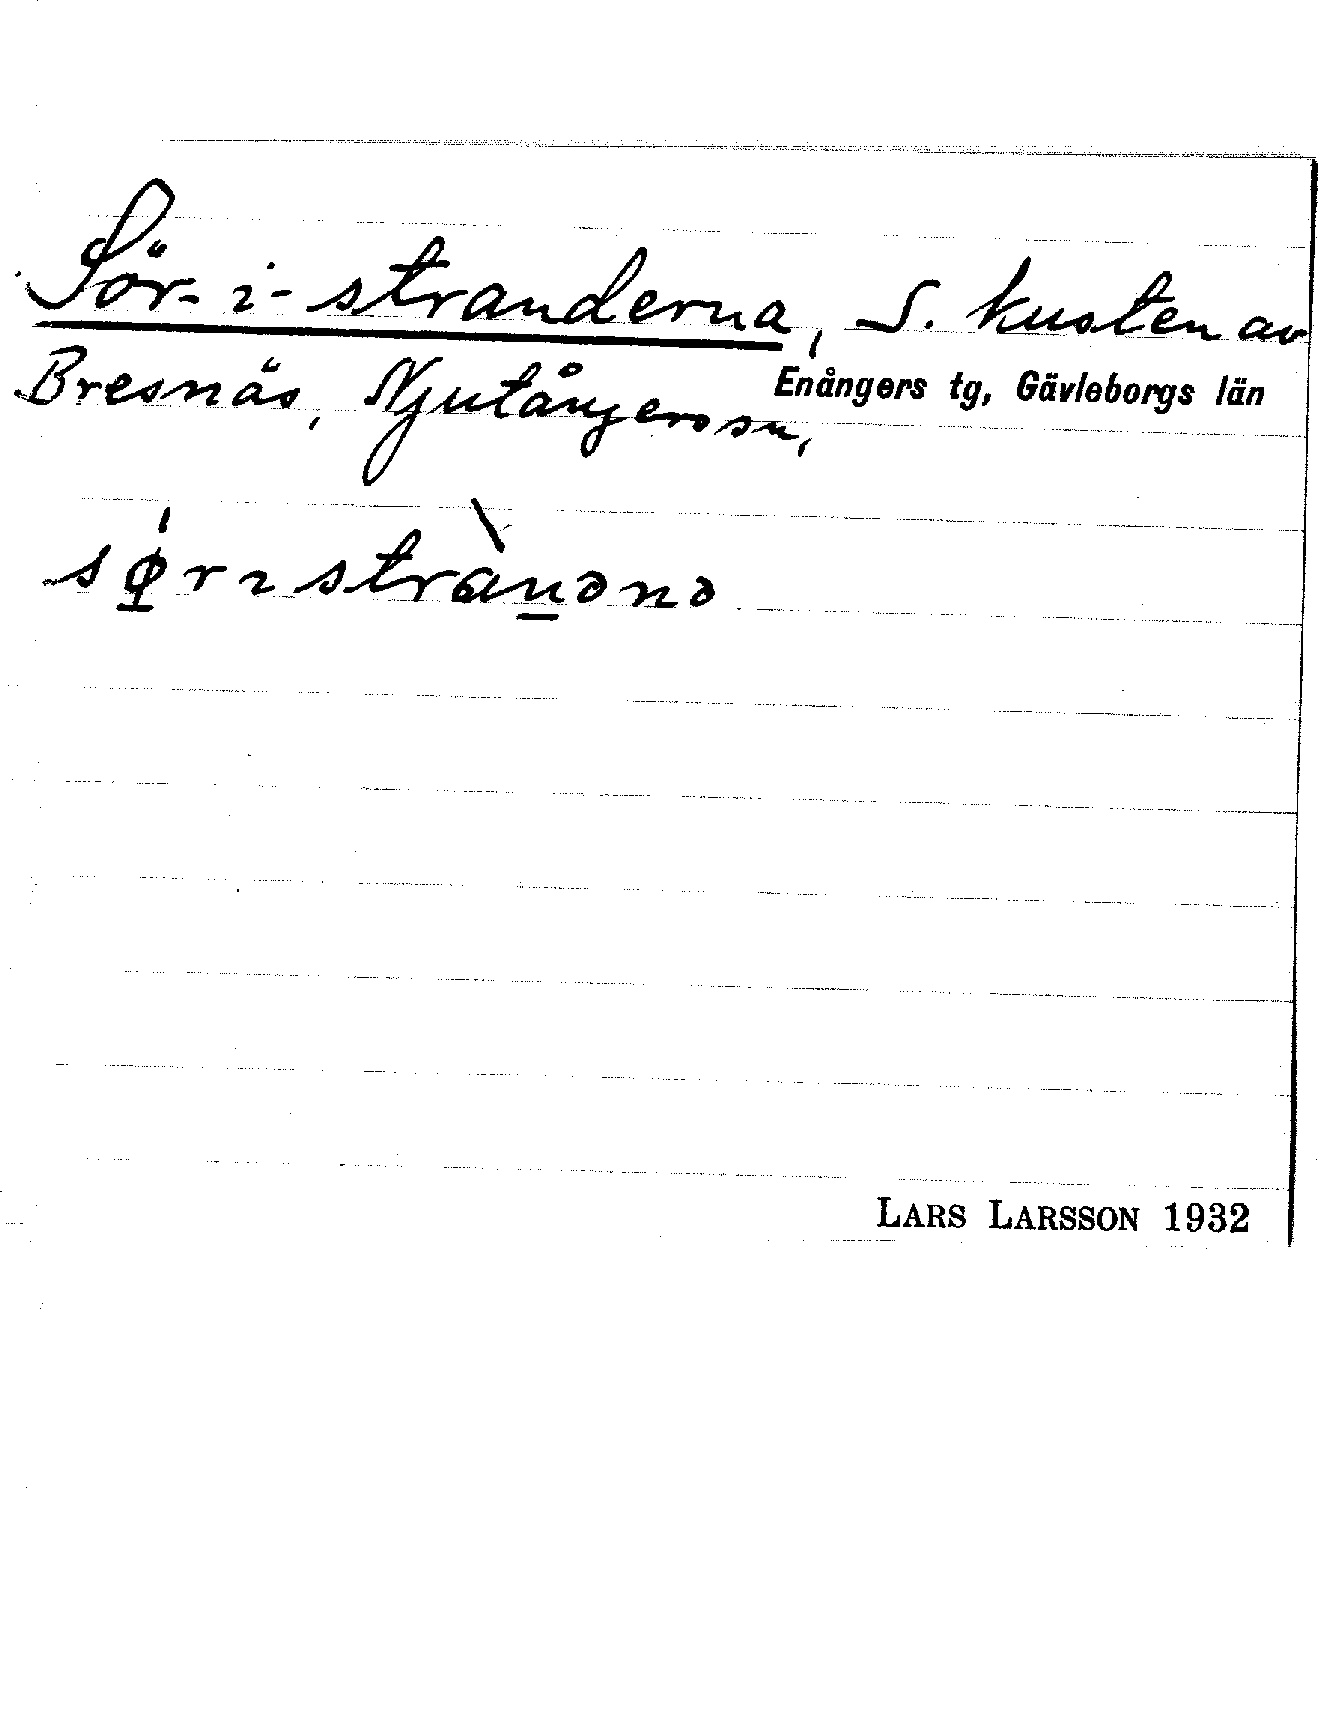 Sör-i-stranderna, S. kusten av
Bresnäs, Njutångers sn, Enångers tg, Gävleborgs län
sǿ̱rɩstràṉənə
LARS LARSSON 1932